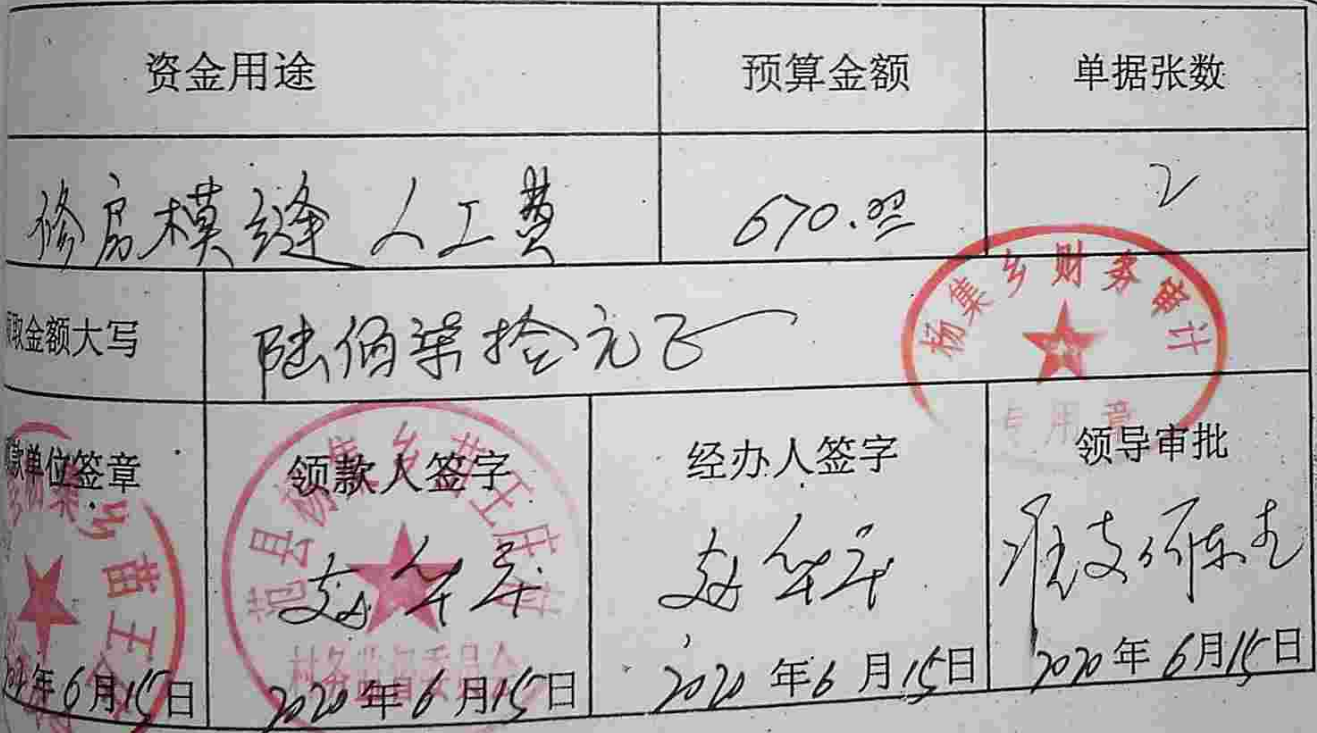 资金用途 预算金额 单据张数
修房模缝人工费 670.00 2
取金额大写 陆佰柒拾元正
杨集乡财务审计
专用章
款单位签章 领款人签字 经办人签字 领导审批
乡苗王
范县杨集乡苗王庄村
村务监督委员会
准支
年6月15日 2020年6月15日 2020年6月15日 2020年6月15日